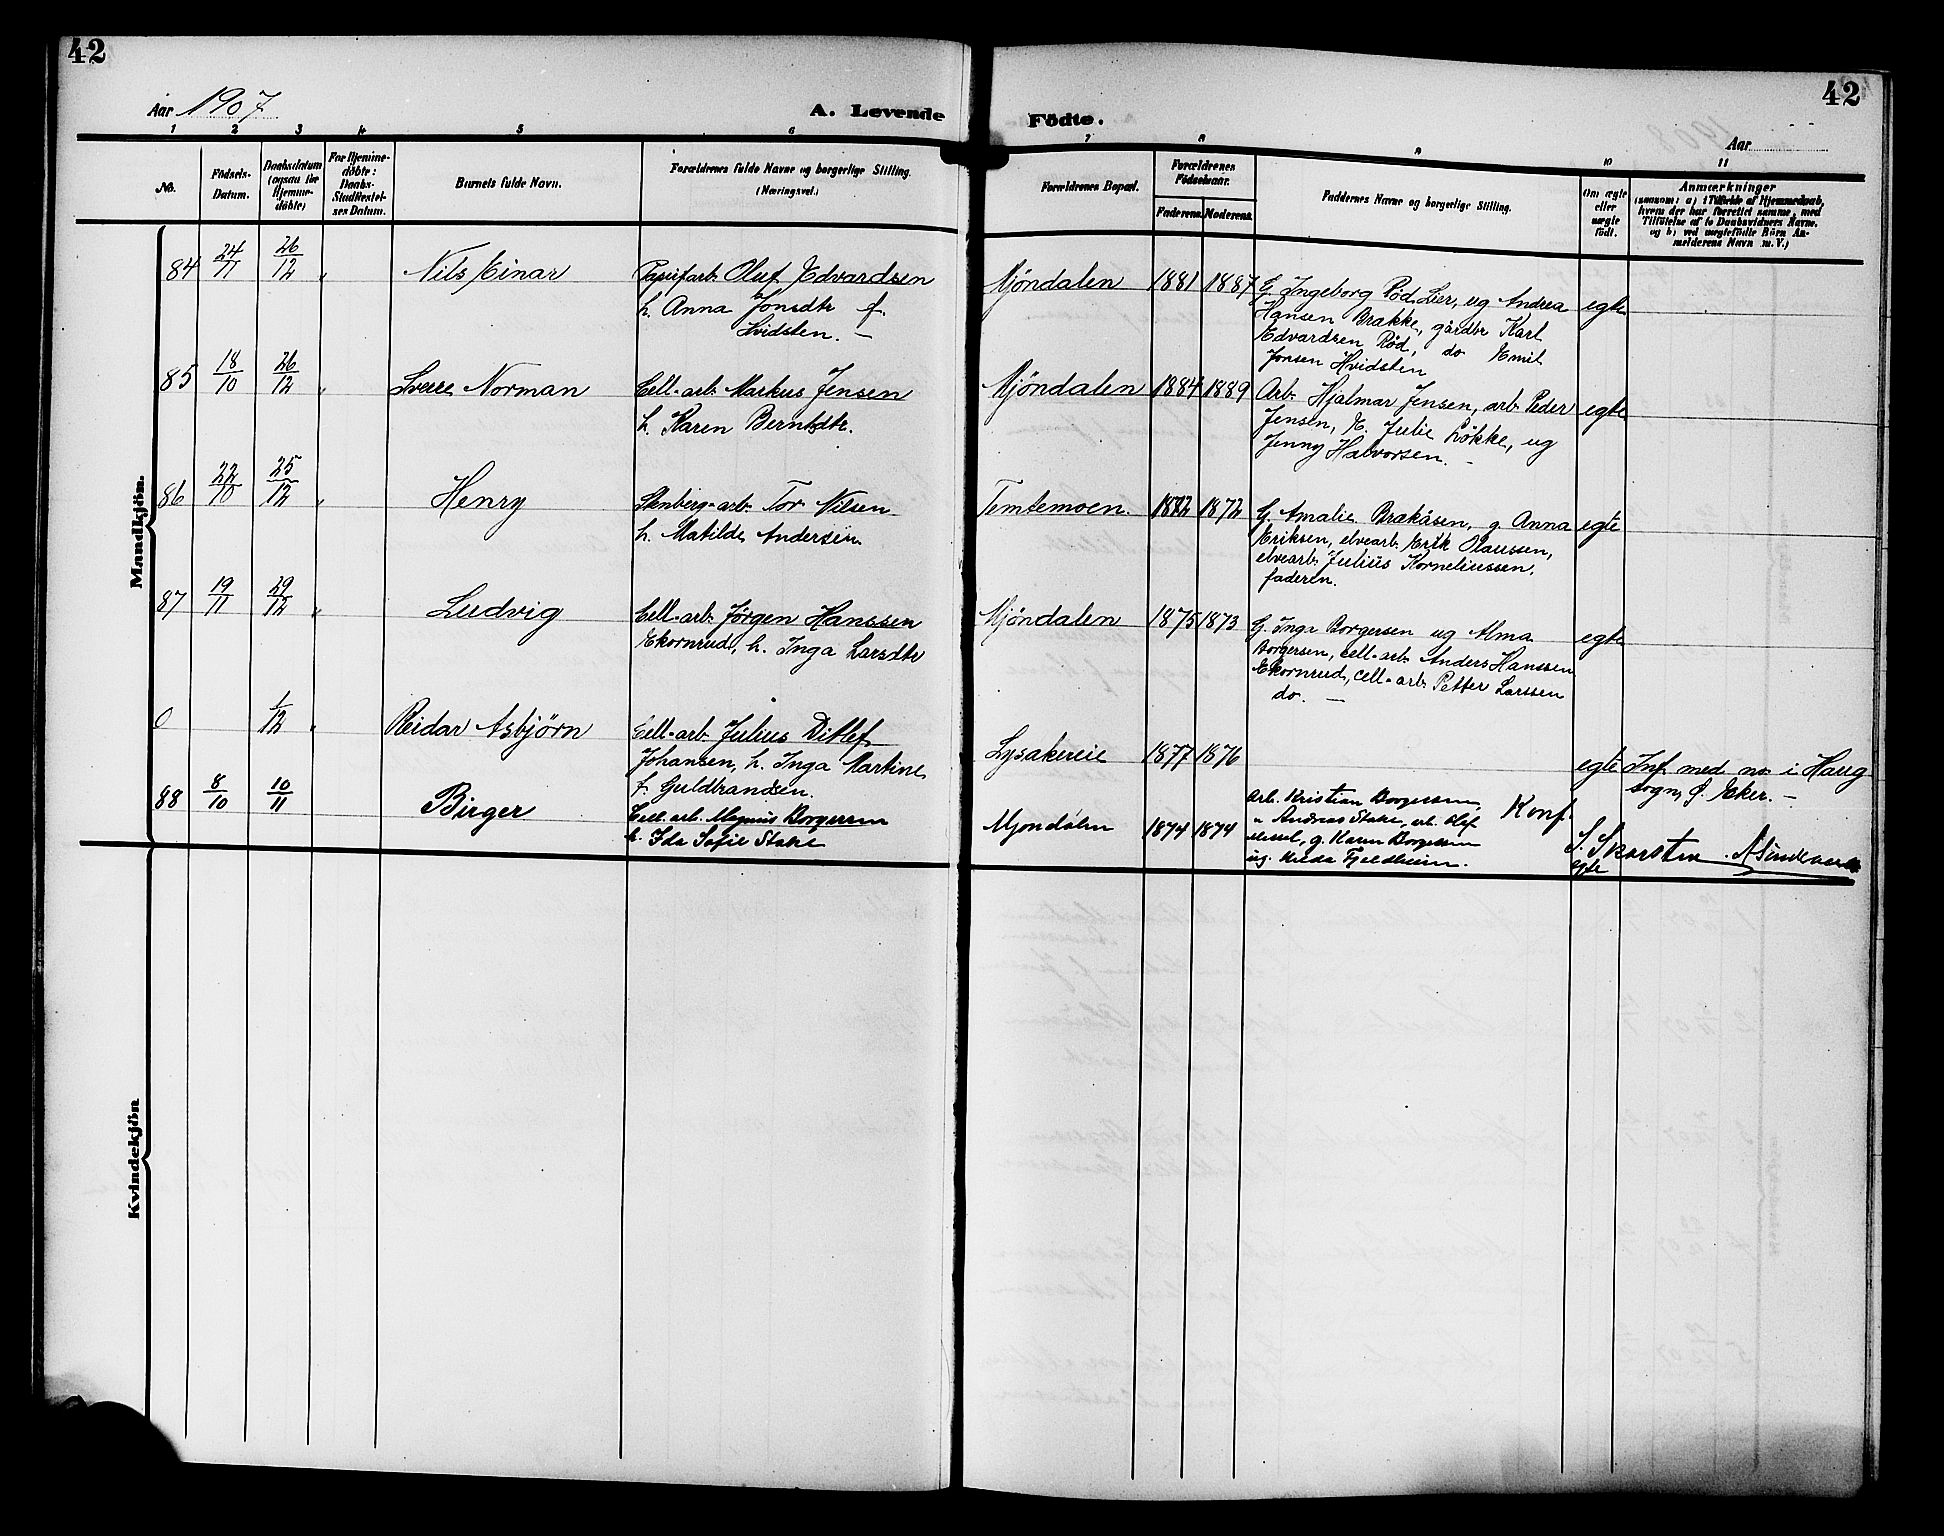 42
42
Aar 1907
A. Levende
Födte.
Aar
1 2 3 4 5 6 7 8 9 10 11
No.
Födsels-
Datum.
Daabsdatum
(ogsaa for
Hjemme-
döbte)
For Hjemme-
döbte:
Daabs-
Stadfæstel-
ses Datum.
Barnets fulde Navn.
Forældrenes fulde Navne og borgerlige Stilling.
(Næringsvei.)
Forældrenes Bopæl.
Forældrenes
Födselsaar.
Faderens. Moderens.
Faddernes Navne og borgerlige Stilling.
Om ægte
eller
uægte
födt.
Anmærkninger
(saasom: a) i Tilfælde af Hjemmedaab,
hvem der har forrettet samme, med
Tilföielse af to Daabsvidners Navne.
og b) ved uægtefödte Börn An-
melderens Navn m. V.)
Mandkjön.
84 24/11 26/12 " Nils Einar
Papirfarb. Oluf Edvardsen
h. Anna Jonsdtr f.
Hvidsten. —
Mjöndalen 1881 1887
G. Ingeborg Röd, Lier, ug Andrea
Hansen Brække, gårdbr Karl
Edvardsen Röd, do Emil
Jonsen Hvidsten
egte
85 18/10 26/12 " Sverre Norman
Cell-arb. Markus Jensen
h. Karen Berntsdtr.
Mjöndalen 1884 1889
Arb. Hjalmar Jensen, arb. Peder
Jensen, K. Julie Løkke, ug
Jenny Halvorsen. —
egte
86 22/10 25/12 " Henry
Stenberg-arb. Tor Nilsen
h. Matilde Andersen.
Temtemoen. 1872 1872
G. Amalie Brakåsen, g. Anna
Eriksen, elvearb. Erik Olaussen,
elvearb. Julius Korneliussen.
faderen.
egte
87 19/11 29/12 " Ludvig
Cell-arb. Jørgen Hanssen
Ekornrud, h. Inga Larsdtr
Mjöndalen 1875 1873
G. Inga Borgersen ug Alma
Borgersen, cell-arb. Anders Hanssen
Ekornrud, cell-arb. Petter Larssen
do. —
egte
0 1/12 " Reidar Asbjørn
Cell-arb. Julius Ditlef
Johansen, h. Inga Martine
f. Guldbrandsen.
Lysakereie 1877 1876
egte Inf. med no i Haug
sogn, Ø. Eker. —
88 8/10 10/11 Birger
Cell. arb. Magnus Borgersen
h. Ida Sofie Stake
Mjøndalen 1874 1874
Arb. Kristian Borgersen,
" Andreas Stake, arb. Olef
Messel, g. Karen Borgersen
ug. Hilda Fjeldheim.
egte
Konf.
S. Skarstein
Kvindekjön